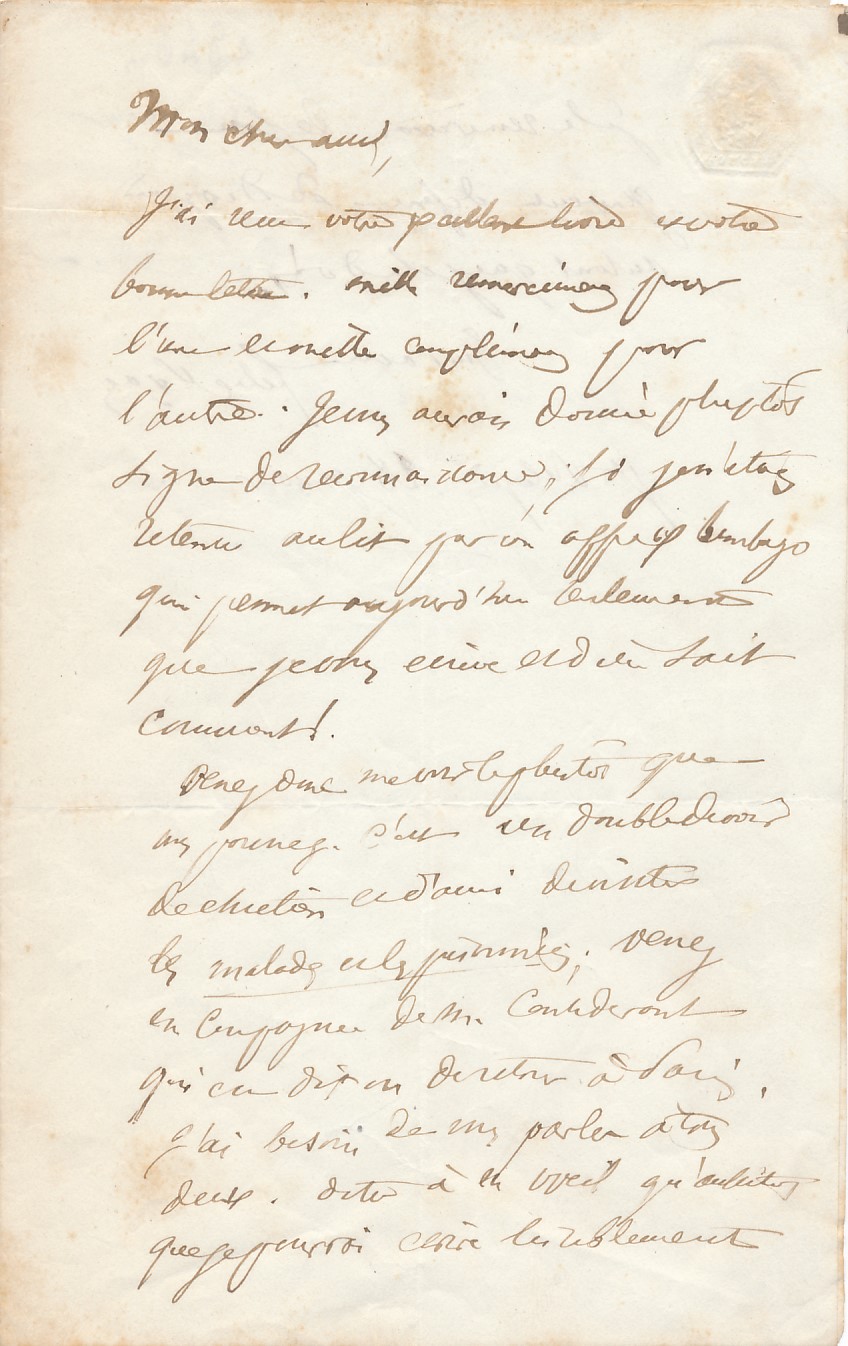 Mon cher ami,
J'ai reçu votre excellent livre et votre
bonne lettre. mille remerciemens pour
l'une et mille complimens pour
l'autre. Je vous aurais donné plustôt
signe de reconnaissance, si je n'étais
retenu au lit par un affreux lumbago
qui permet aujourd'hui seulement
que je vous écrive et dieu sait
comment!
Venez donc me voir le plustôt que
vous pourrez. C'est un double devoir
de chrétien et d'ami de visiter
les malades et les prisonniers; venez
en compagnie de M. Considerant
qui est dit on de retour à Paris,
J'ai besoin de vous parler à tous
deux. dites à qu'aussitôt
que je pourrai écrire lisiblement